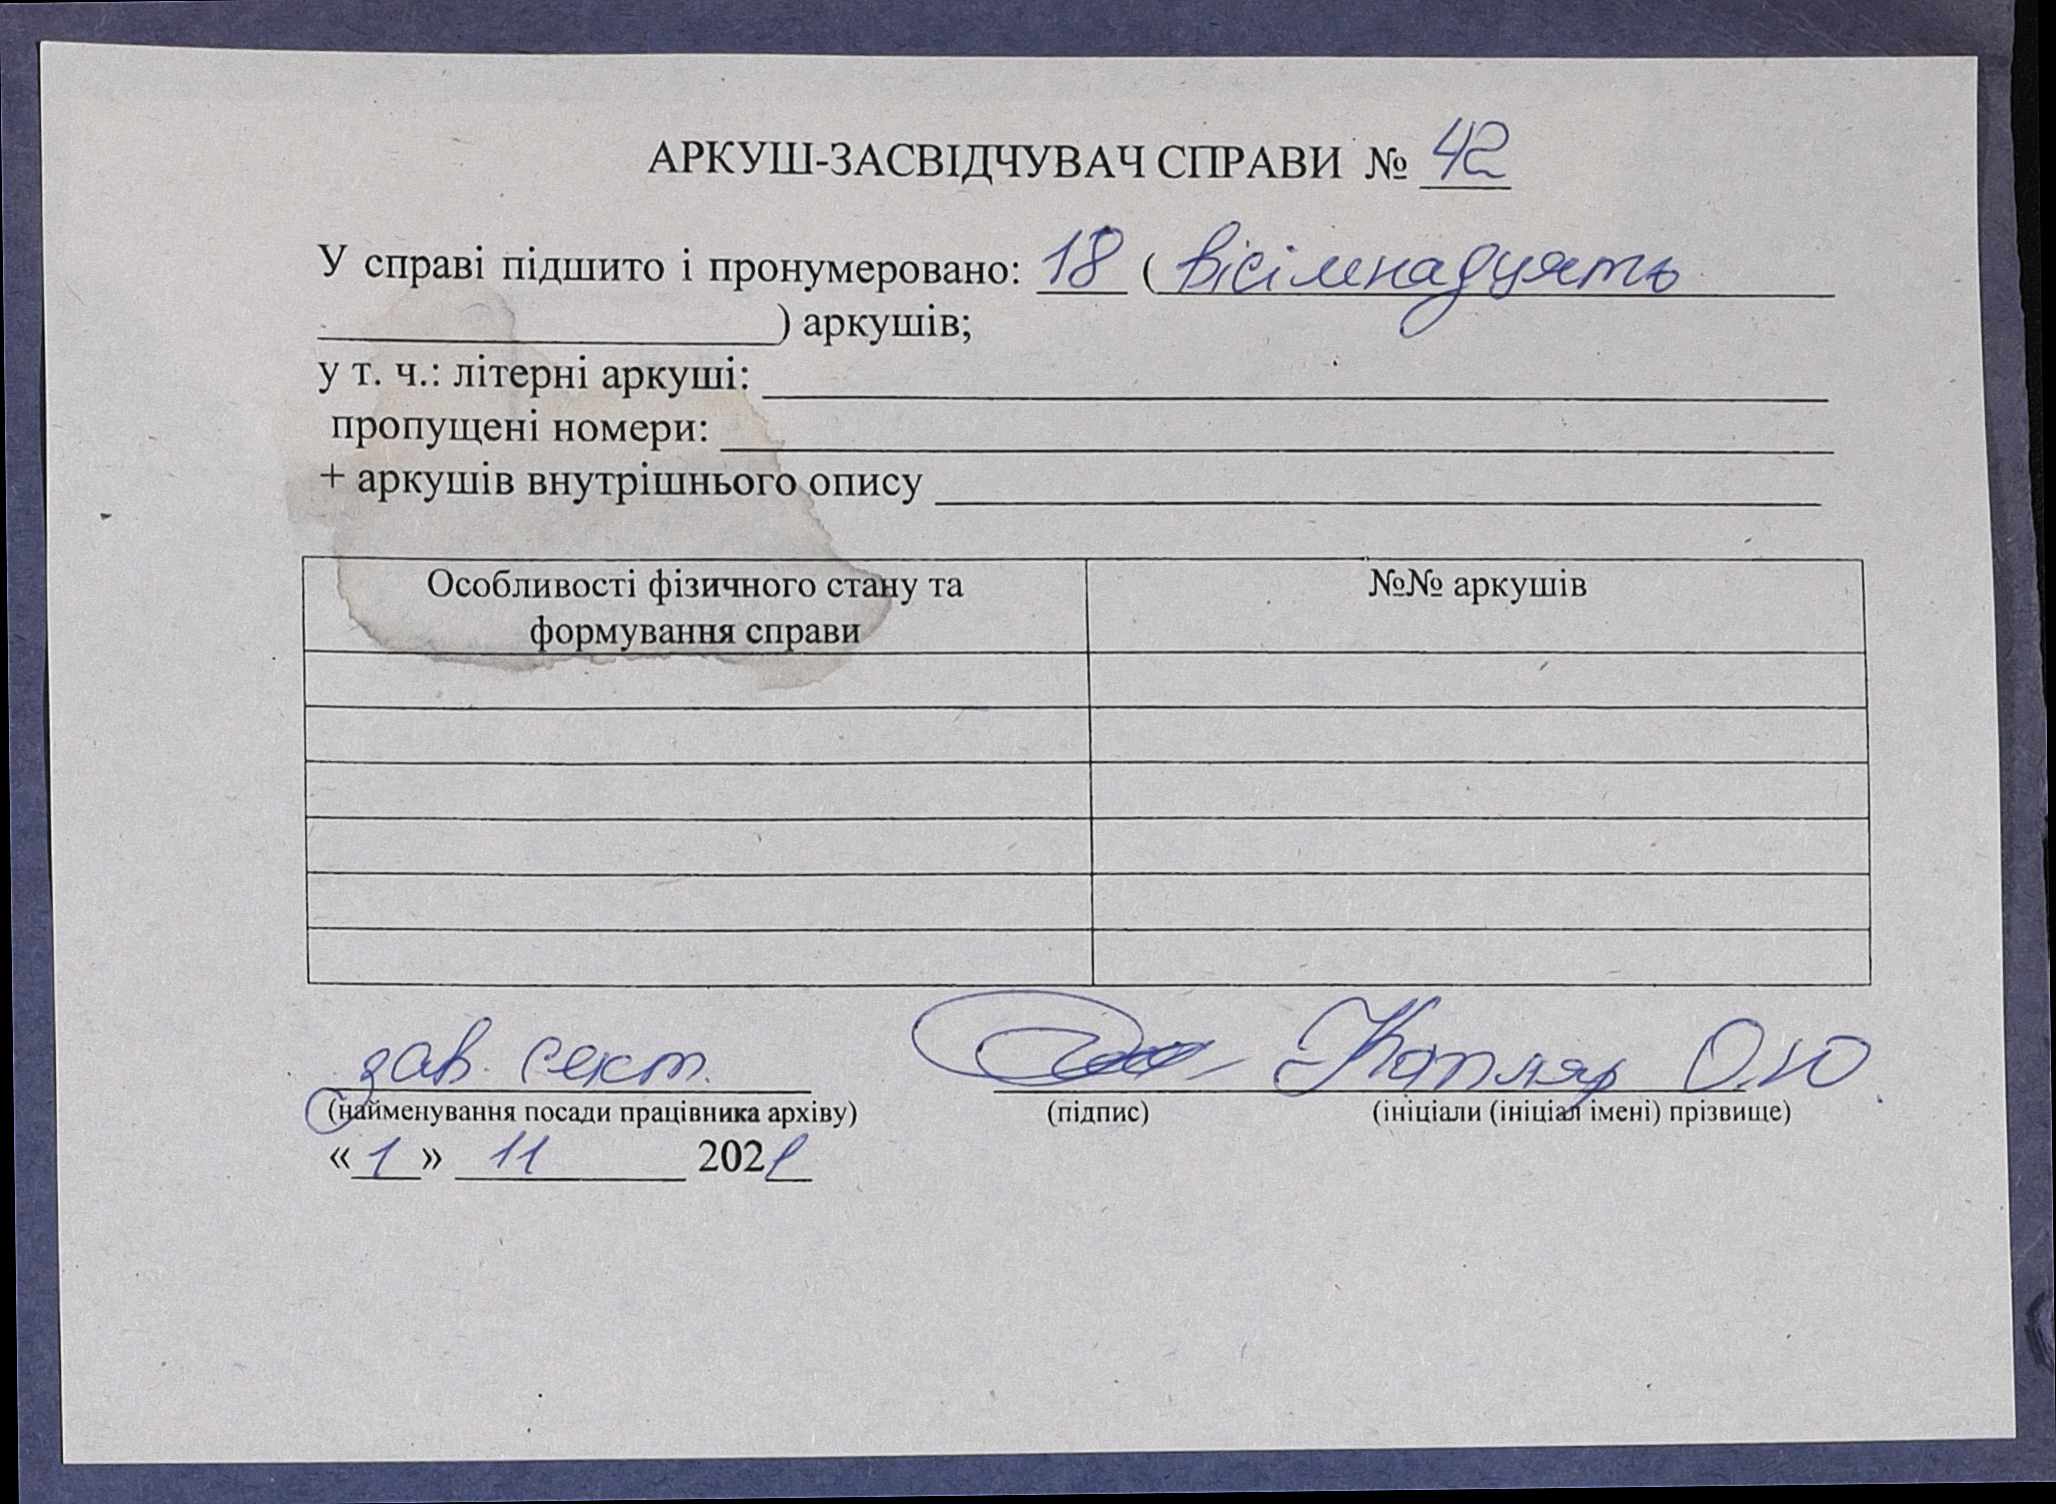 АРКУШ-ЗАСВІДЧУВАЧ СПРАВИ № 42
У справі підшито і пронумеровано: 18 (вісімнадцять
) аркушів;
у т. ч.: літерні аркуші:
пропущені номери:
+ аркушів внутрішнього опису
Особливості фізичного стану та
формування справи
№№ аркушів
зав. сект. Котляр О.Ю
(найменування посади працівника архіву) (підпис) (ініціали (ініціал імені) прізвище)
«1» 11 2021